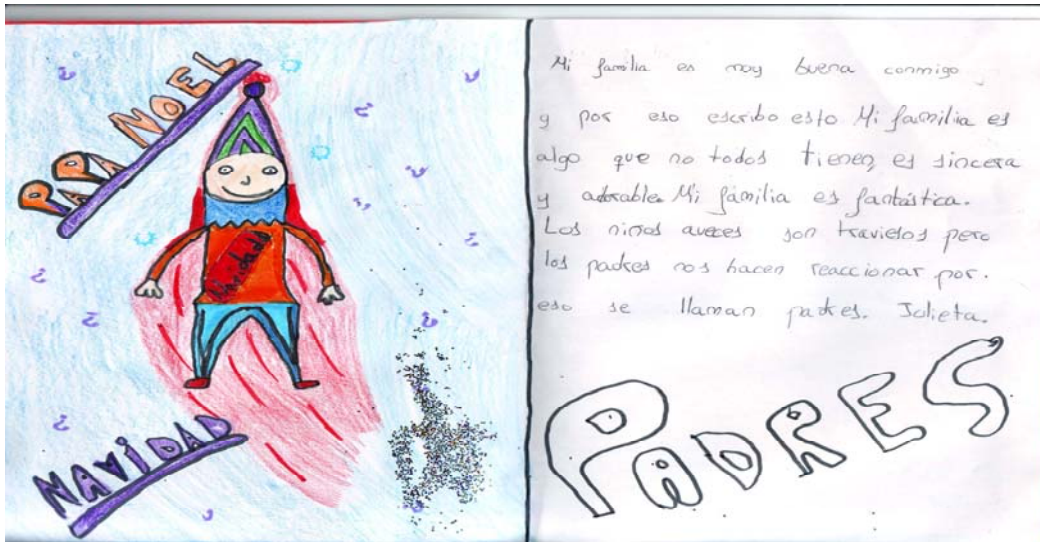 PAPA NOEL
Navidad
NAVIDAD
Mi familia es muy buena conmigo
y por eso escribo esto Mi familia es
algo que no todos tienen, es sincera
y adorable. Mi familia es fantástica.
Los niños aveces son traviesos pero
los padres nos hacen reaccionar por.
eso se llaman padres. Julieta.
PADRES